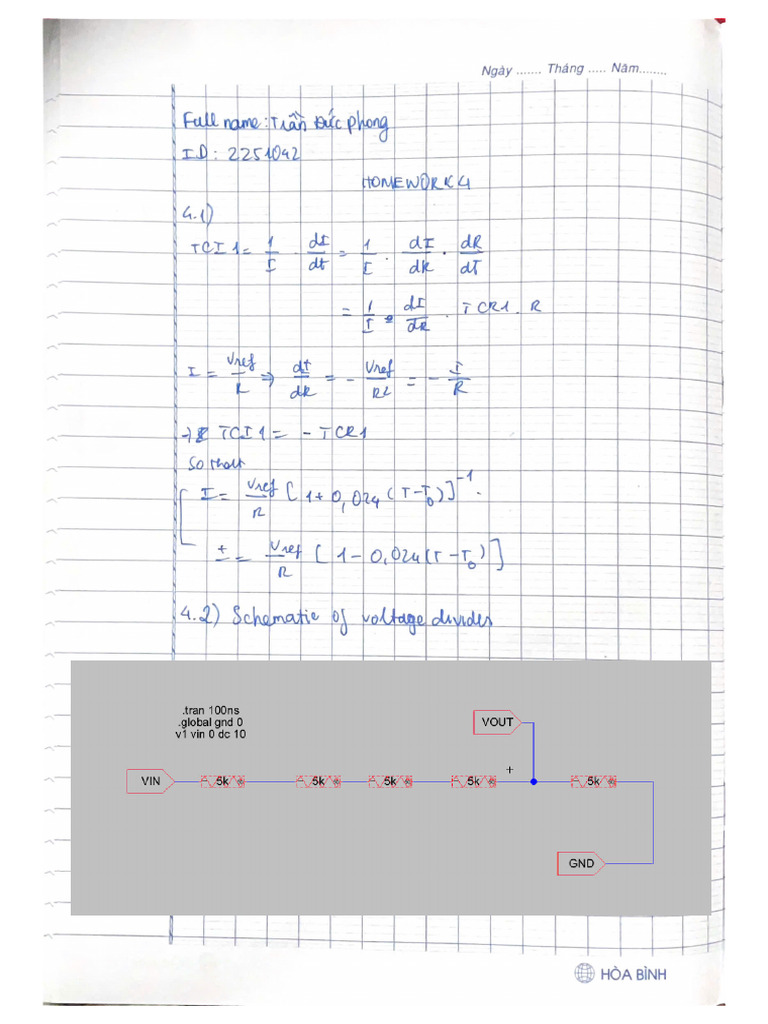 Ngày ....... Tháng ..... Năm........
Full name: Trần Đức Phong
ID: 2251042
HOMEWORK 4
4.1)
TCI1 = 1/I · dI/dt = 1/I · dI/dR · dR/dT
= 1/I · dI/dR · TCR1 · R
I = Vref/R ⇒ dI/dR = - Vref/R2 = - I/R
→ TCI1 = - TCR1
So that
I = Vref/R [1 + 0,024 (T-T0)]^-1.
I = Vref/R [1 - 0,024 (T-T0)]
4.2) Schematic of voltage divider
.tran 100ns
.global gnd 0
v1 vin 0 dc 10
VOUT
VIN 5k 5k 5k 5k + 5k
GND
HÒA BÌNH